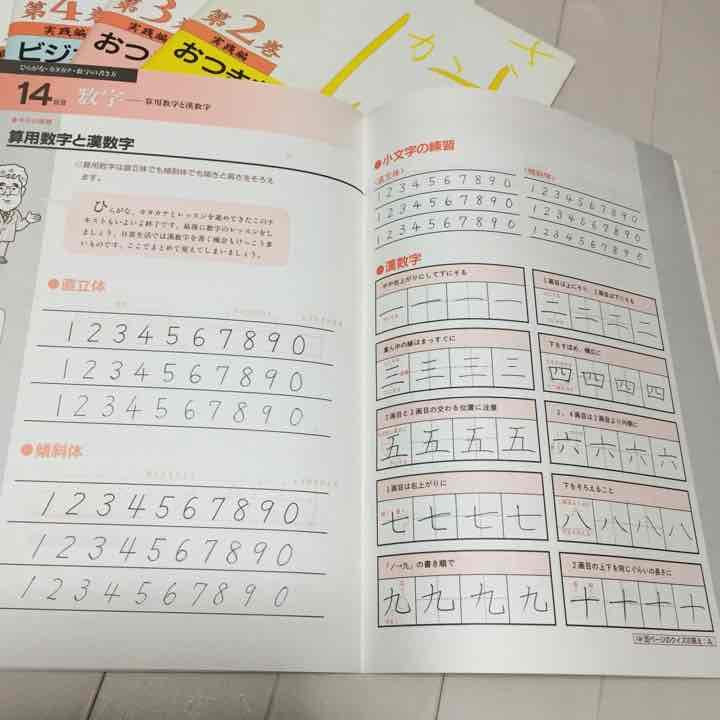 第4巻
実践編
ビジ
第3巻
実践編
おつ
第2巻
実践編
おつき
ひらがな・カタカナ・数字の書き方
14
数字
算用数字と漢数字
算用数字と漢数字
算用数字は直立体でも傾斜体でも幅きと高さをそろえ
ます。
ひらがな、カタカナとレッスンを進めてきたこのテ
キストもいよいよ終了です。最後に数字のレッスンをし
ましょう。日常生活では漢数字を書く機会もけっこう多
いものです。ここでまとめて覚えてしまいましょう。
●直立体
1234567890
1234567890
1234567890
●傾斜体
1234567890
1234567890
1234567890
●小文字の練習
〈直立体〉
1234567890
1234567890
1234567890
〈傾斜体〉
1234567890
1234567890
1234567890
●漢数字
やや右上がりにして下にそる
一 一 一 一
1画目は上にそり、2画目は下にそる
二 二 二 二
真ん中の線はまっすぐに
三 三 三 三
下をすぼめ、横広に
四 四 四 四
2画目と3画目の交わる位置に注意
五 五 五 五
3、4画目は2画目より内側に
六 六 六 六
1画目は右上がりに
七 七 七 七
下をそろえること
八 八 八 八
「ノ→九」の書き順で
九 九 九 九
2画目の上下を同じぐらいの長さに
十 十 十 十